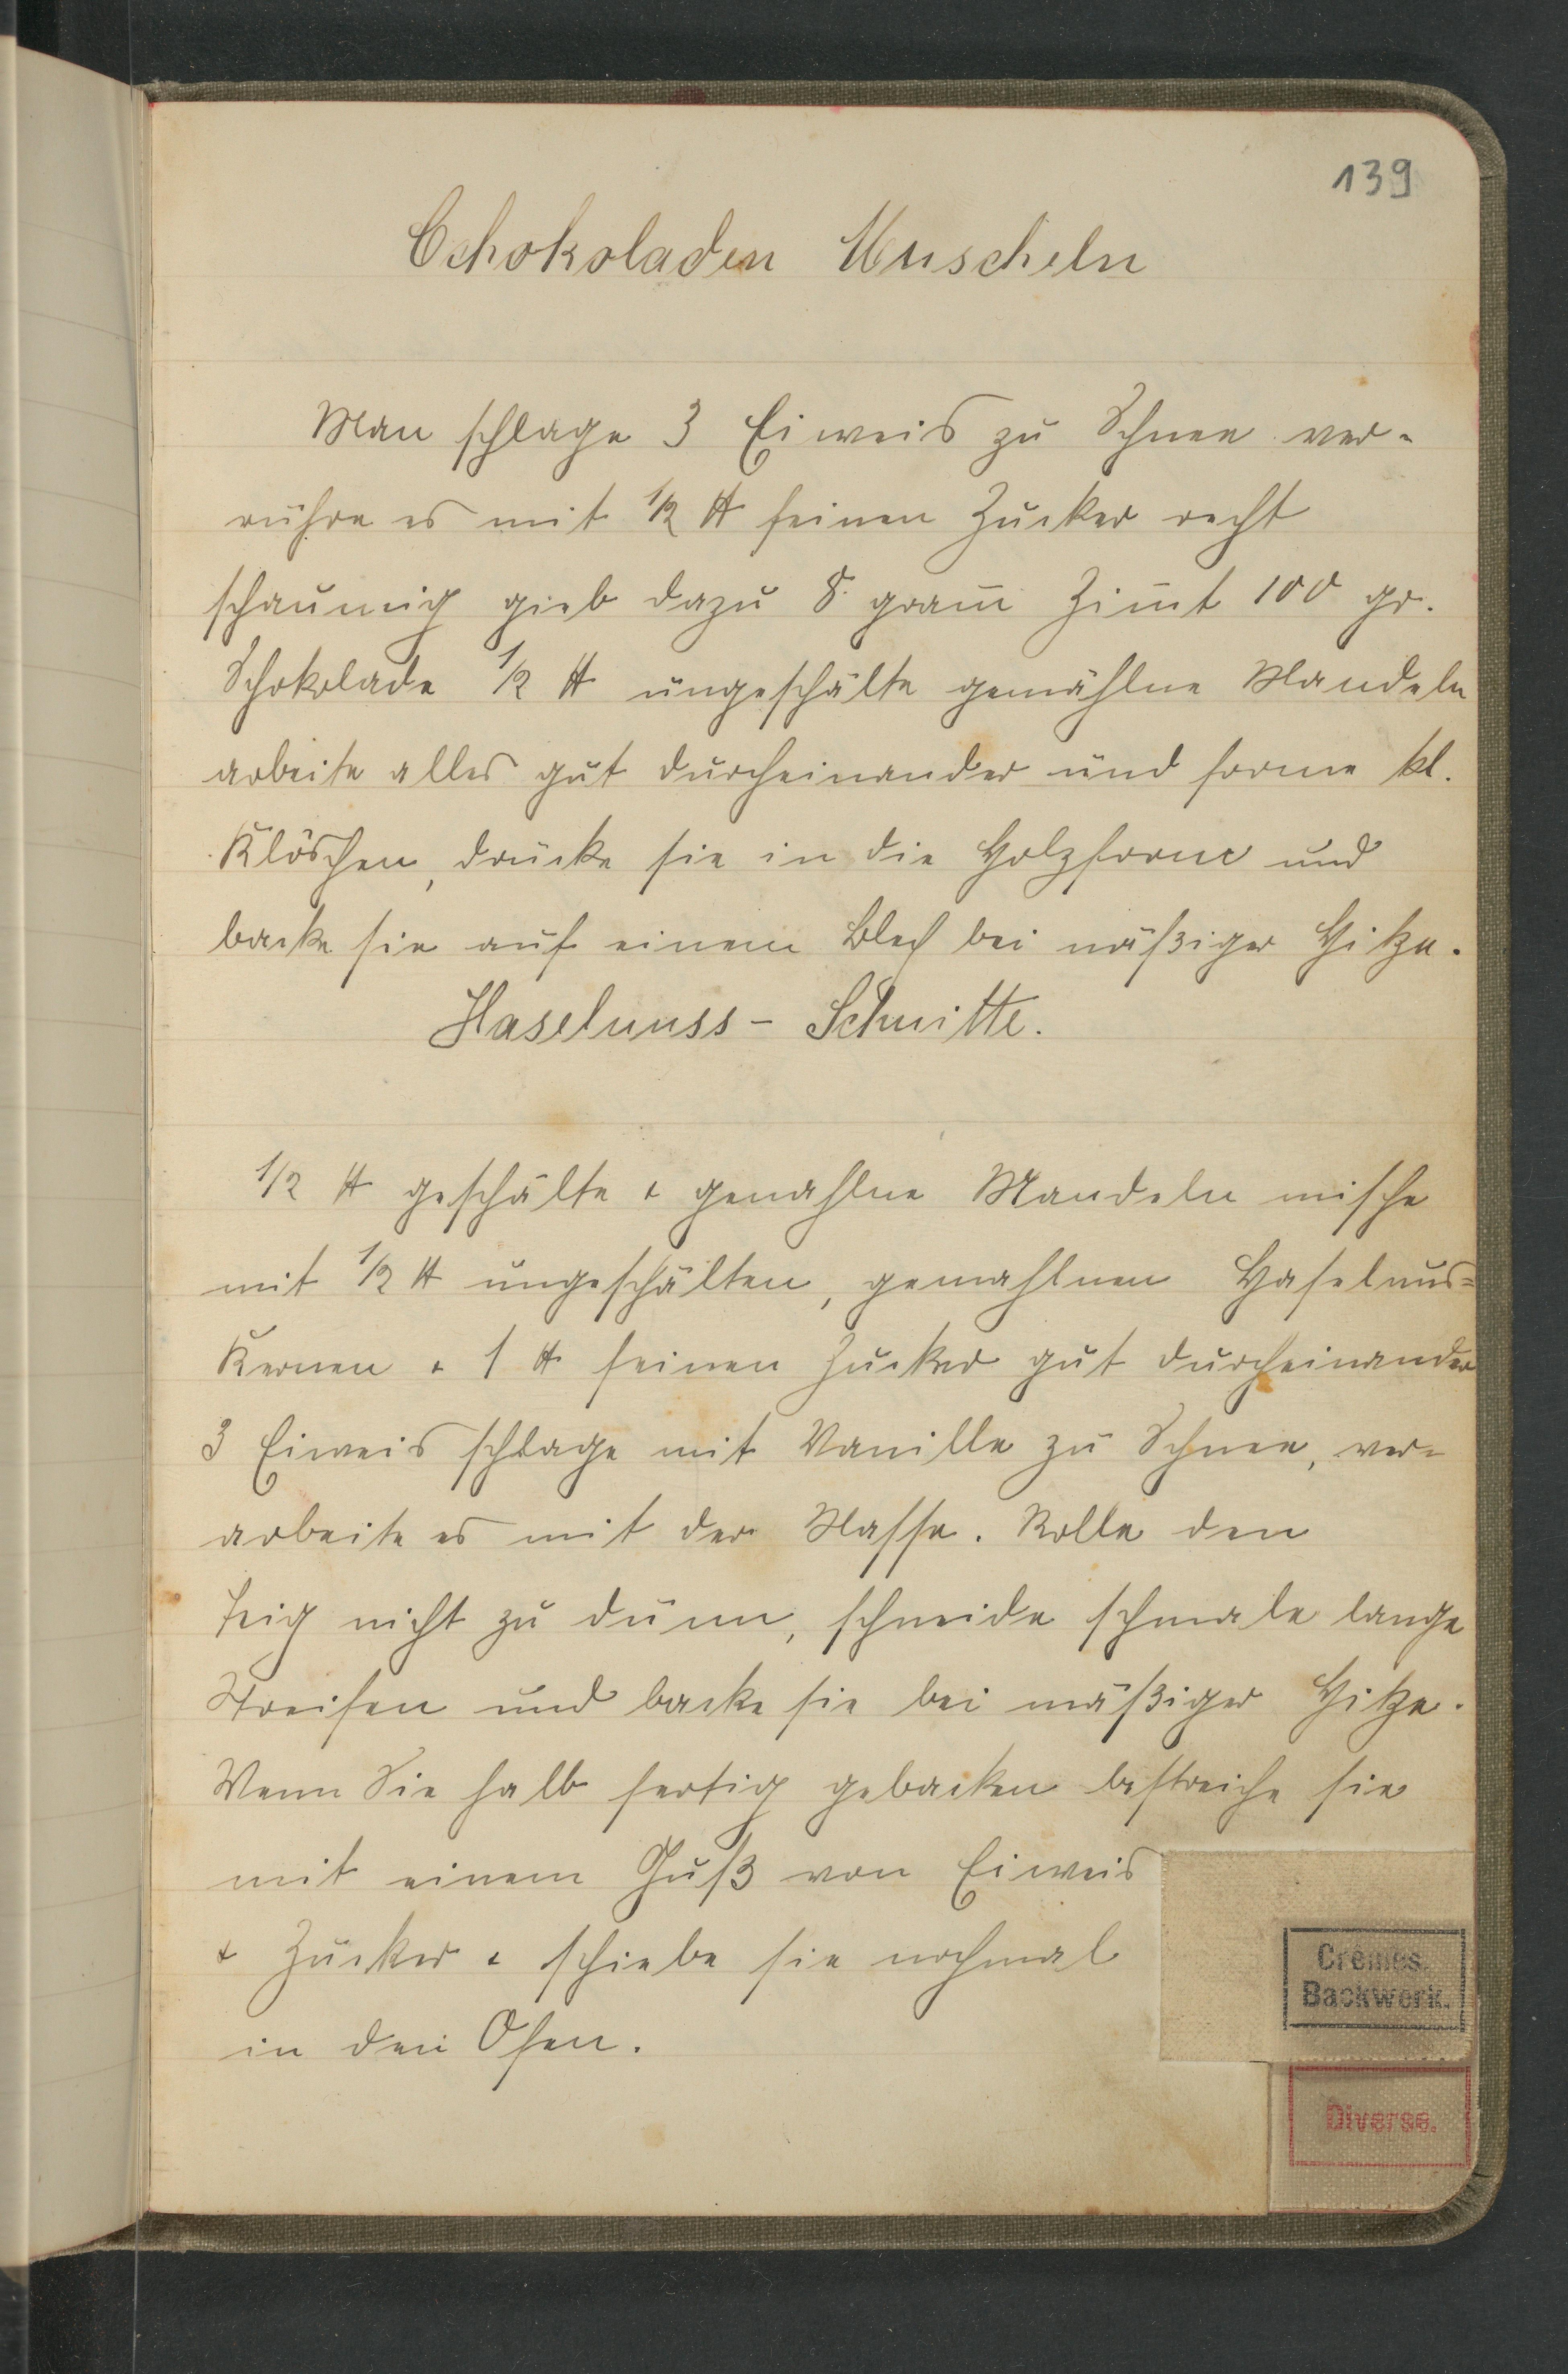 139
Chokoladen Muscheln
Man schlage 3 Eiweis zu Schnee ver-
rühre es mit 1/2 ℔ feinen Zucker recht
schaumig gieb dazu 8. gram̄ Zim̄t 100 gr.
Schokolade 1/2 ℔ ungeschälte gemahlne Mandeln
arbeite alles gut durcheinander und forme kl.
Klöschen, drücke sie in die Holzform und
backe sie auf einem Blech bei mäßiger Hitze.
Haselnuss - Schnitte.
1/2 ℔ geschälte & gemahlne Mandeln mische
mit 1/2 ℔ ungeschälten, gemahlnen Haselnus=
Kernen & 1 ℔ feinen Zucker gut durcheinander
3 Eiweis schlage mit Vanille zu Schnee, ver-
arbeite es mit der Masse. Rolle den
Teig nicht zu dünn, schneide schmale lange
Streifen und backe sie bei mäßiger Hitze.
Wenn Sie halb fertig gebacken bestreiche sie
mit einem Guß von Eiweis
& Zucker & schiebe sie nochmal
in den Ofen.
Crêmes.
Backwerk.
Diverse.